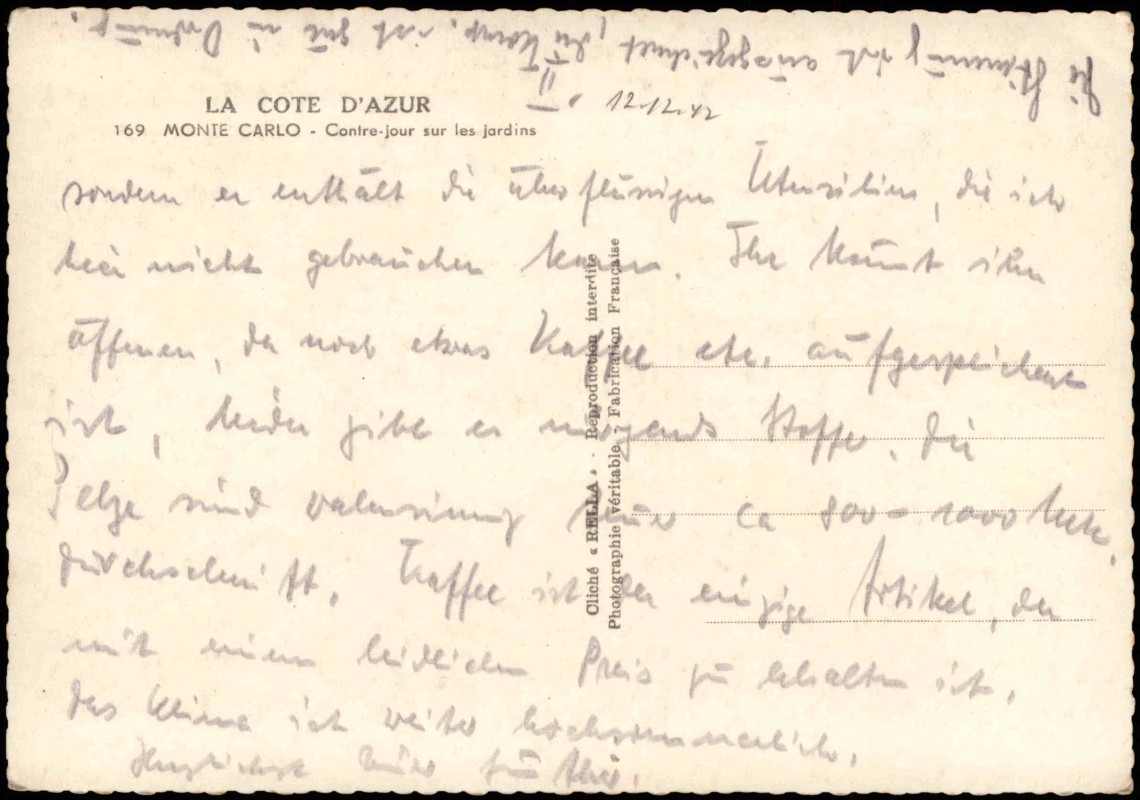 II. 12.12.42
LA COTE D'AZUR
169 MONTE CARLO - Contre-jour sur les jardins
sondern er enthält die überflüssigen Utensilien, die ich
hier nicht gebrauchen kann. Ihr könnt ihn
öffnen, da noch etwas Kaffee etc. aufgespeichert
ist, leider gibt es nirgends Stoffe. Die
Pelze sind wahnsinnig teuer ca 800-1000 Mk.
durchschnitt. Kaffee ist der einzige Artikel, der
mit einem leidlichen Preis zu behalten ist.
Das Klima ist weiter hochsommerlich.
Herzlichst Euer Günther.
Die Stimmung ist ausgezeichnet, die Komp. ist gut in Ordnung.
Cliché « RELLA » - Reproduction interdite
Photographie véritable - Fabrication Française